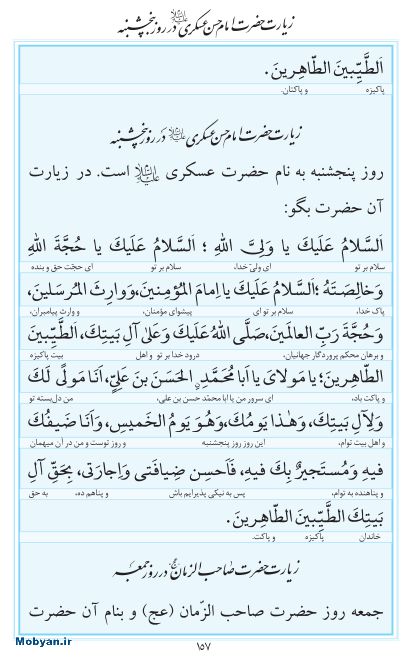 زیارت حضرت امام حسن عسکری علیه السلام در روز پنجشنبه
اَلطَّیِّبینَ الطّاهِرینَ.
پاکیزه و پاکتان.
زیارت حضرت امام حسن عسکری علیه السلام در روز پنجشنبه
روز پنجشنبه به نام حضرت عسکری علیه السلام است. در زیارت
آن حضرت بگو:
اَلسَّلامُ عَلَیْكَ یا وَلِیَّ اللهِ ؛ اَلسَّلامُ عَلَیْكَ یا حُجَّةَ اللهِ
سلام بر تو ای ولیّ خدا، سلام بر تو ای حجّت حق و بنده
وَخالِصَتَهُ ؛ اَلسَّلامُ عَلَیْكَ یا اِمامَ الْمُؤْمِنینَ، وَوارِثَ الْمُرْسَلینَ،
پاک خدا، سلام بر تو ای پیشوای مؤمنان، و وارث پیامبران،
وَحُجَّةَ رَبِّ الْعالَمینَ، صَلَّی اللهُ عَلَیْكَ وَعَلی آلِ بَیْتِكَ، الطَّیِّبینَ
و برهان محکم پروردگار جهانیان، درود خدا بر تو و اهل بیت پاکیزه
الطّاهِرینَ؛ یا مَوْلایَ یا اَبا مُحَمَّدٍ الْحَسَنَ بْنَ عَلِیٍّ، اَنَا مَوْلیً لَكَ
و پاکت باد، ای سرور من یا ابا محمّد حسن بن علی، من دل‌بسته تو
وَلِآلِ بَیْتِكَ، وَهٰذا یَوْمُكَ، وَهُوَ یَوْمُ الْخَمیسِ، وَاَنَا ضَیْفُكَ
و اهل بیت توام، این روز روز پنجشنبه و روز توست و من در آن میهمان
فیهِ وَمُسْتَجیرٌ بِكَ فیهِ، فَاَحْسِنْ ضِیافَتی وَاِجارَتی، بِحَقِّ آلِ
و پناهنده به توام، پس به نیکی پذیرایم باش و پناهم ده، به حق
بَیْتِكَ الطَّیِّبینَ الطّاهِرینَ.
خاندان پاکیزه و پاکت.
زیارت حضرت صاحب الزمان عج در روز جمعه
جمعه روز حضرت صاحب الزّمان (عج) و بنام آن حضرت
Mobyan.ir
۱۵۷